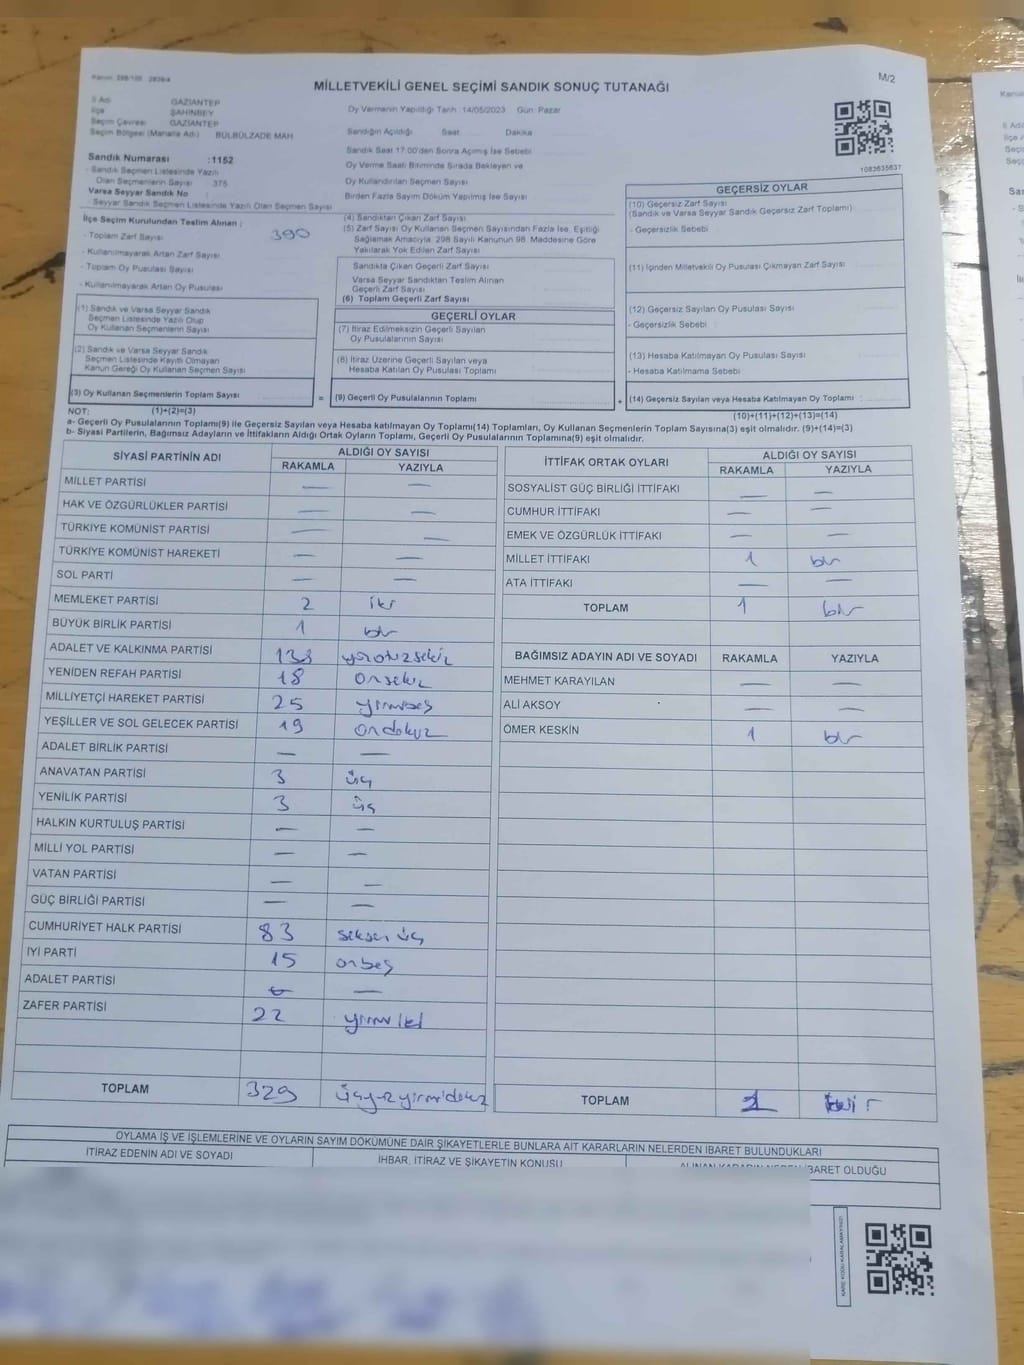 M/2
MİLLETVEKİLİ GENEL SEÇİMİ SANDIK SONUÇ TUTANAĞI
İl Adı GAZİANTEP
İlçe ŞAHİNBEY
Seçim Çevresi GAZİANTEP
Seçim Bölgesi (Mahalle Adı) BÜLBÜLZADE MAH
Sandık Numarası :1152
- Sandık Seçmen Listesinde Yazılı
Olan Seçmenlerin Sayısı 375
Varsa Seyyar Sandık No
- Seyyar Sandık Seçmen Listesinde Yazılı Olan Seçmen Sayısı
Oy Vermenin Yapıldığı Tarih :14/05/2023 Gün: Pazar
Sandığın Açıldığı Saat Dakika
Sandık Saat 17:00'den Sonra Açılmış İse Sebebi
Oy Verme Saati Bitiminde Sırada Bekleyen ve
Oy Kullandırılan Seçmen Sayısı
Birden Fazla Sayım Döküm Yapılmış İse Sayısı
1083635637
İlçe Seçim Kurulundan Teslim Alınan :
- Toplam Zarf Sayısı 390
- Kullanılmayarak Artan Zarf Sayısı
- Toplam Oy Pusulası Sayısı
- Kullanılmayarak Artan Oy Pusulası
(1) Sandık ve Varsa Seyyar Sandık
Seçmen Listesinde Yazılı Olup
Oy Kullanan Seçmenlerin Sayısı
(2) Sandık ve Varsa Seyyar Sandık
Seçmen Listesinde Kayıtlı Olmayan
Kanun Gereği Oy Kullanan Seçmen Sayısı
(3) Oy Kullanan Seçmenlerin Toplam Sayısı
(4) Sandıktan Çıkan Zarf Sayısı
(5) Zarf Sayısı Oy Kullanan Seçmen Sayısından Fazla İse, Eşitliği
Sağlamak Amacıyla, 298 Sayılı Kanunun 98. Maddesine Göre
Yakılarak Yok Edilen Zarf Sayısı
Sandıkta Çıkan Geçerli Zarf Sayısı
Varsa Seyyar Sandıktan Teslim Alınan
Geçerli Zarf Sayısı
(6) Toplam Geçerli Zarf Sayısı
GEÇERLİ OYLAR
(7) İtiraz Edilmeksizin Geçerli Sayılan
Oy Pusulalarının Sayısı
(8) İtiraz Üzerine Geçerli Sayılan veya
Hesaba Katılan Oy Pusulası Toplamı
= (9) Geçerli Oy Pusulalarının Toplamı
GEÇERSİZ OYLAR
(10) Geçersiz Zarf Sayısı
(Sandık ve Varsa Seyyar Sandık Geçersiz Zarf Toplamı)
- Geçersizlik Sebebi
(11) İçinden Milletvekili Oy Pusulası Çıkmayan Zarf Sayısı
(12) Geçersiz Sayılan Oy Pusulası Sayısı
- Geçersizlik Sebebi
(13) Hesaba Katılmayan Oy Pusulası Sayısı
- Hesaba Katılmama Sebebi
+ (14) Geçersiz Sayılan veya Hesaba Katılmayan Oy Toplamı :
NOT: (1)+(2)=(3) (10)+(11)+(12)+(13)=(14)
a- Geçerli Oy Pusulalarının Toplamı(9) ile Geçersiz Sayılan veya Hesaba katılmayan Oy Toplamı(14) Toplamları, Oy Kullanan Seçmenlerin Toplam Sayısına(3) eşit olmalıdır. (9)+(14)=(3)
b- Siyasi Partilerin, Bağımsız Adayların ve İttifakların Aldığı Ortak Oyların Toplamı, Geçerli Oy Pusulalarının Toplamına(9) eşit olmalıdır.
SİYASİ PARTİNİN ADI ALDIĞI OY SAYISI
RAKAMLA YAZIYLA
MİLLET PARTİSİ — —
HAK VE ÖZGÜRLÜKLER PARTİSİ — —
TÜRKİYE KOMÜNİST PARTİSİ — —
TÜRKİYE KOMÜNİST HAREKETİ — —
SOL PARTİ — —
MEMLEKET PARTİSİ 2 iki
BÜYÜK BİRLİK PARTİSİ 1 bir
ADALET VE KALKINMA PARTİSİ 138 yüzotuzsekiz
YENİDEN REFAH PARTİSİ 18 onsekiz
MİLLİYETÇİ HAREKET PARTİSİ 25 yirmibeş
YEŞİLLER VE SOL GELECEK PARTİSİ 19 ondokuz
ADALET BİRLİK PARTİSİ — —
ANAVATAN PARTİSİ 3 üç
YENİLİK PARTİSİ 3 üç
HALKIN KURTULUŞ PARTİSİ — —
MİLLİ YOL PARTİSİ — —
VATAN PARTİSİ — —
GÜÇ BİRLİĞİ PARTİSİ — —
CUMHURİYET HALK PARTİSİ 83 seksen üç
İYİ PARTİ 15 onbeş
ADALET PARTİSİ — —
ZAFER PARTİSİ 22 yirmi iki
TOPLAM 329 üçyüzyirmidokuz
İTTİFAK ORTAK OYLARI ALDIĞI OY SAYISI
RAKAMLA YAZIYLA
SOSYALİST GÜÇ BİRLİĞİ İTTİFAKI — —
CUMHUR İTTİFAKI — —
EMEK VE ÖZGÜRLÜK İTTİFAKI — —
MİLLET İTTİFAKI 1 bir
ATA İTTİFAKI — —
TOPLAM 1 bir
BAĞIMSIZ ADAYIN ADI VE SOYADI RAKAMLA YAZIYLA
MEHMET KARAYILAN — —
ALİ AKSOY — —
ÖMER KESKİN 1 bir
TOPLAM 1 bir
OYLAMA İŞ VE İŞLEMLERİNE VE OYLARIN SAYIM DÖKÜMÜNE DAİR ŞİKAYETLERLE BUNLARA AİT KARARLARIN NELERDEN İBARET BULUNDUKLARI
İTİRAZ EDENİN ADI VE SOYADI İHBAR, İTİRAZ VE ŞİKAYETİN KONUSU ALINAN KARARIN NEDEN İBARET OLDUĞU
KARE KODU KARALAMAYINIZ!